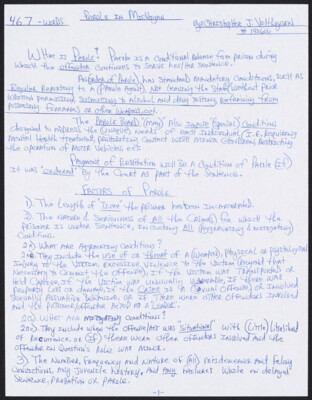 467 - words
Parole In Michigan
By: Christopher J.
What is Parole? Parole is a Conditional Release from prison during
which the offender continues to serve his/her sentence.
of Parole) has Standard Mandatory Conditions, such as
Regular Reporting to a (Parole Agent), Not leaving the State without prior
written permission, Submitting to Alcohol and drug testing, Refraining from
Possessing firearms or other weapons, ect.
The Parole Board (may) Also Impose (Special) Conditions
designed to address the (unique) Needs of each Individual, I.E. requiring
Mental health treatment, prohibiting Contact with minor Children, Restricting
the operation of Motor Vehicles ect.
Payment of Restitution will Be a Condition of Parole (If)
It was "ordered" By the Court as part of the Sentence.
Factors of Parole
1). The Length of "Time" the prisoner has been Incarcerated.
2). The Nature & Seriousness of All the Crime(s) for which the
prisoner is under Sentence, including All (Aggravating & mitigating)
Conditions.
2A) What are Aggravating Conditions?
They Include the use of or threat of a (weapon), Physical or psychological
Injury to the Victim, Excessive Violence to the Victim (beyond that
Necessary to Commit the offense), if the Victim was Transported or
Held Captive, If the Victim was unusually Vulnerable, If there was
property loss or damage, If the Crime is a (Drug Offense) or Involved
Sexually Assaultive Behavior, or If There were other Offenders Involved
and the prisoner/offender Acted as a Leader.
2B) What are Mitigating Conditions?
They include when the offense/act was Situational with (little) likelihood
of Recurrence, or (If) there were other Offenders Involved and the
offender in Question's Role was minor.
3) The Number, Frequency and Nature of (All) Misdemeanor and Felony
Convictions, Any Juvenile History, And Any while on delayed
Sentence, Probation or Parole.
-1-